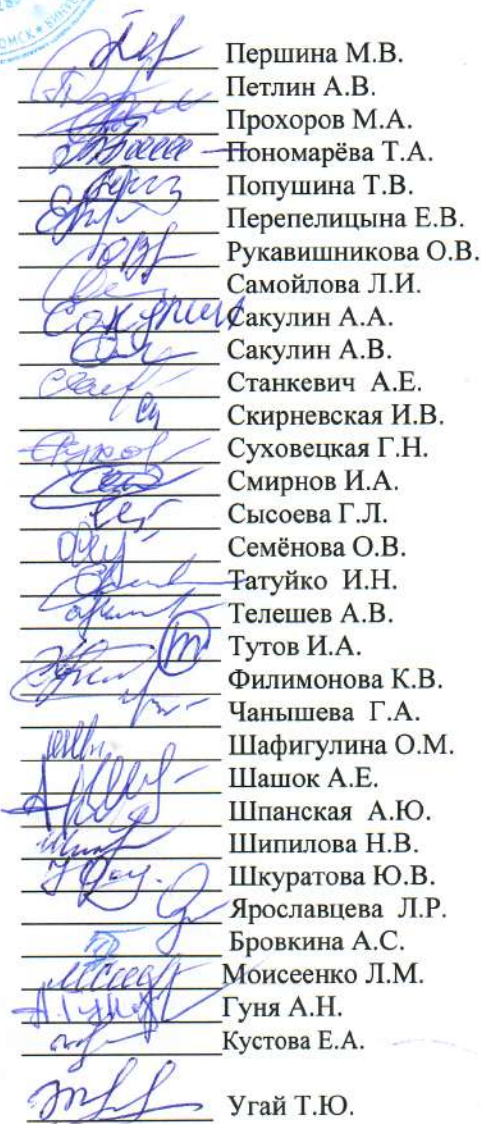 Першина М.В.
Петлин А.В.
Прохоров М.А.
Пономарёва Т.А.
Попушина Т.В.
Перепелицына Е.В.
Рукавишникова О.В.
Самойлова Л.И.
Сакулин А.А.
Сакулин А.В.
Станкевич А.Е.
Скирневская И.В.
Суховецкая Г.Н.
Смирнов И.А.
Сысоева Г.Л.
Семёнова О.В.
Татуйко И.Н.
Телешев А.В.
Тутов И.А.
Филимонова К.В.
Чанышева Г.А.
Шафигулина О.М.
Шашок А.Е.
Шпанская А.Ю.
Шипилова Н.В.
Шкуратова Ю.В.
Ярославцева Л.Р.
Бровкина А.С.
Моисеенко Л.М.
Гуня А.Н.
Кустова Е.А.
Угай Т.Ю.